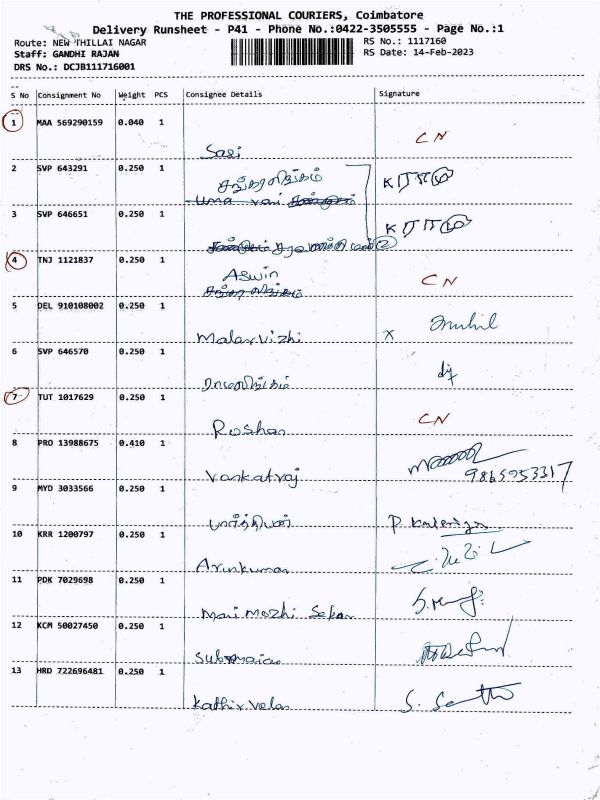 THE PROFESSIONAL COURIERS, Coimbatore
Delivery Runsheet - P41 - Phone No.:0422-3505555 - Page No.:1
Route: NEW THILLAI NAGAR
RS No.: 1117160
Staff: GANDHI RAJAN
RS Date: 14-Feb-2023
DRS No.: DCJB111716001
S No Consignment No Weight PCS Consignee Details Signature
1 MAA 569290159 0.040 1
CN
Sasi
2 SVP 643291 0.250 1
சங்கரலிங்கம்
Uma rani
3 SVP 646651 0.250 1
4 TNJ 1121837 0.250 1
Aswin CN
5 DEL 910108002 0.250 1
Malarvizhi x
6 SVP 646570 0.250 1
ராமலிங்கம்
7 TUT 1017629 0.250 1
CN
Roshan
8 PRO 13988675 0.410 1
9865953317
Vankatraj
9 MYD 3033566 0.250 1
பார்த்திபன்
10 KRR 1200797 0.250 1
Arunkumar
11 PDK 7029698 0.250 1
Mani mozhi Sekar
12 KCM 50027450 0.250 1
13 HRD 722696481 0.250 1
Kathir velan